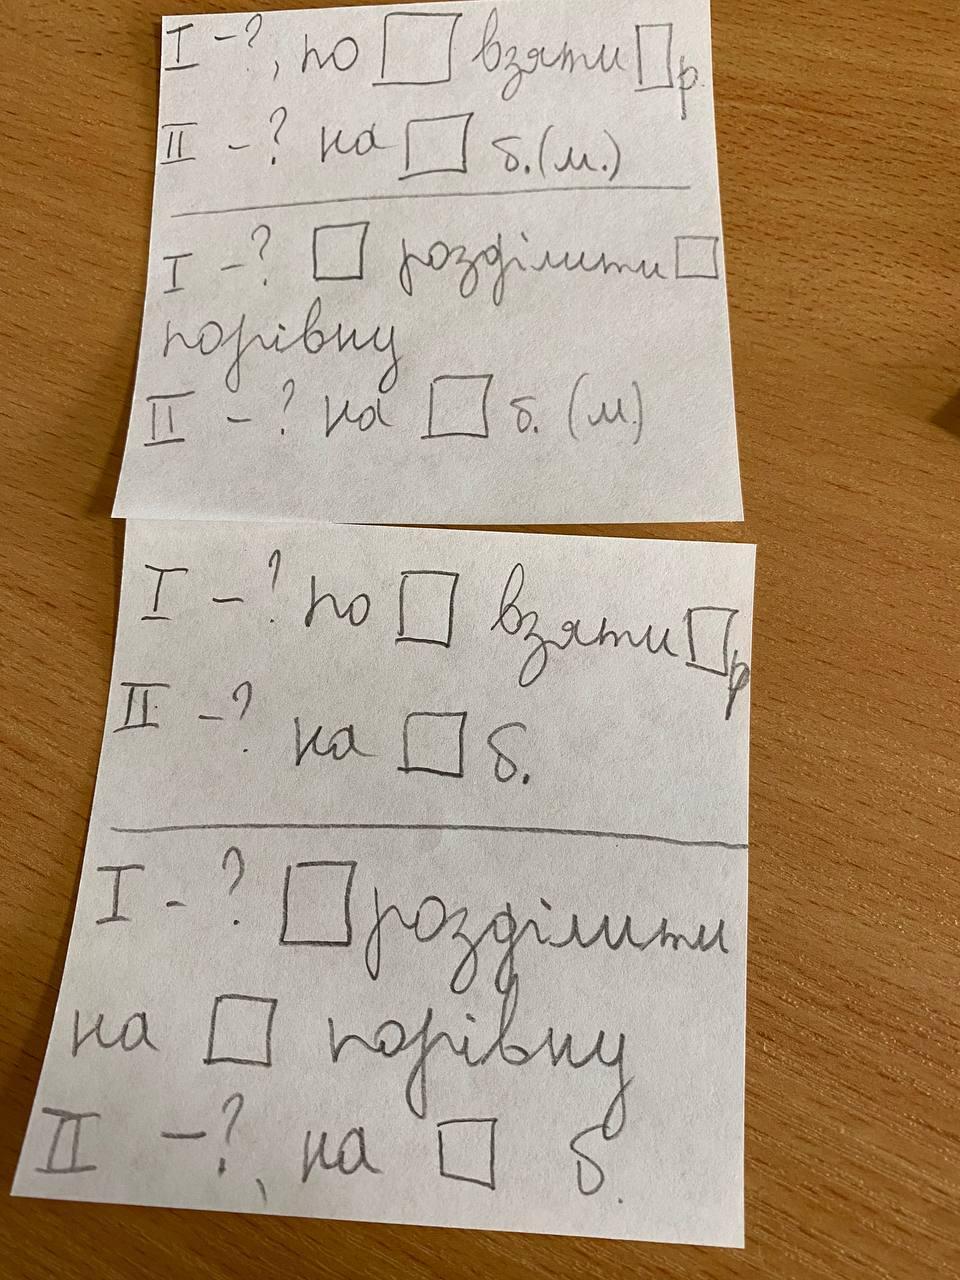 I - ?, по □ взяти □ р.
II - ? на □ б. (м.)
I - ? □ розділити □
порівну
II - ? на □ б. (м.)
I - ? по □ взяти □ р
II - ? на □ б.
I - ? □ розділити
на □ порівну
II - ?, на □ б.